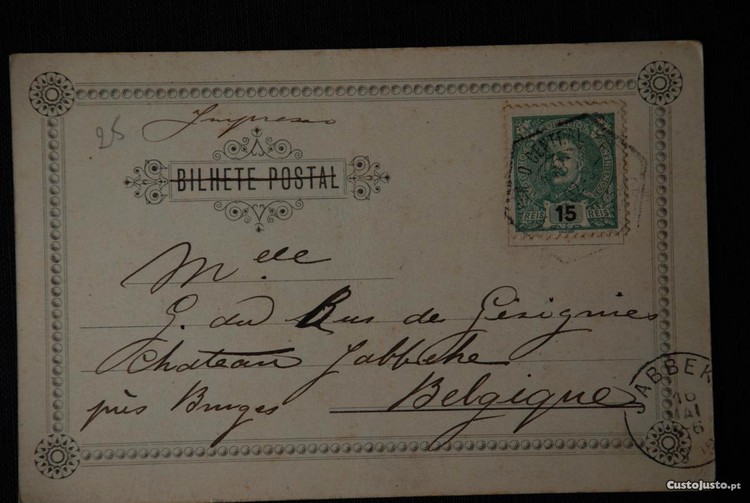 25
Impresso
BILHETE POSTAL
CENTRAL
REIS 15 REIS
Melle
G. du Rus de Gisignies
Chateau Jabbeke
près Bruges Belgique
JABBEKE
10
MAI
6
CustoJusto.pt